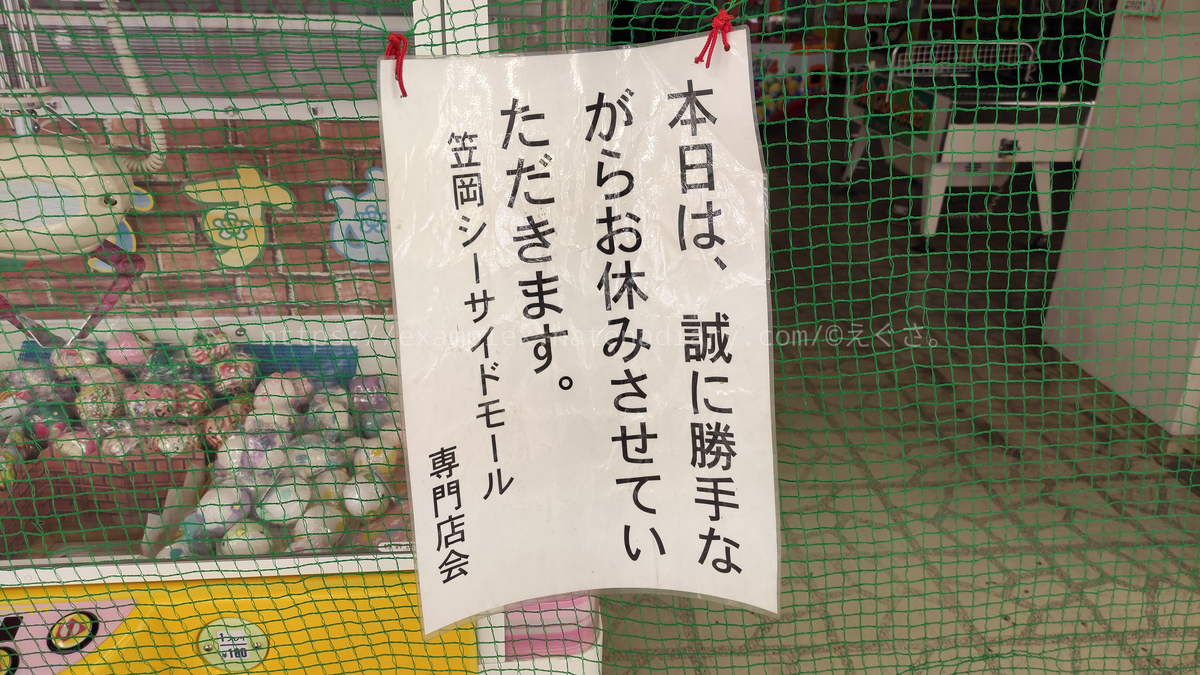 本日は、誠に勝手な
がらお休みさせてい
ただきます。
笠岡シーサイドモール
専門店会
1プレイ
¥100